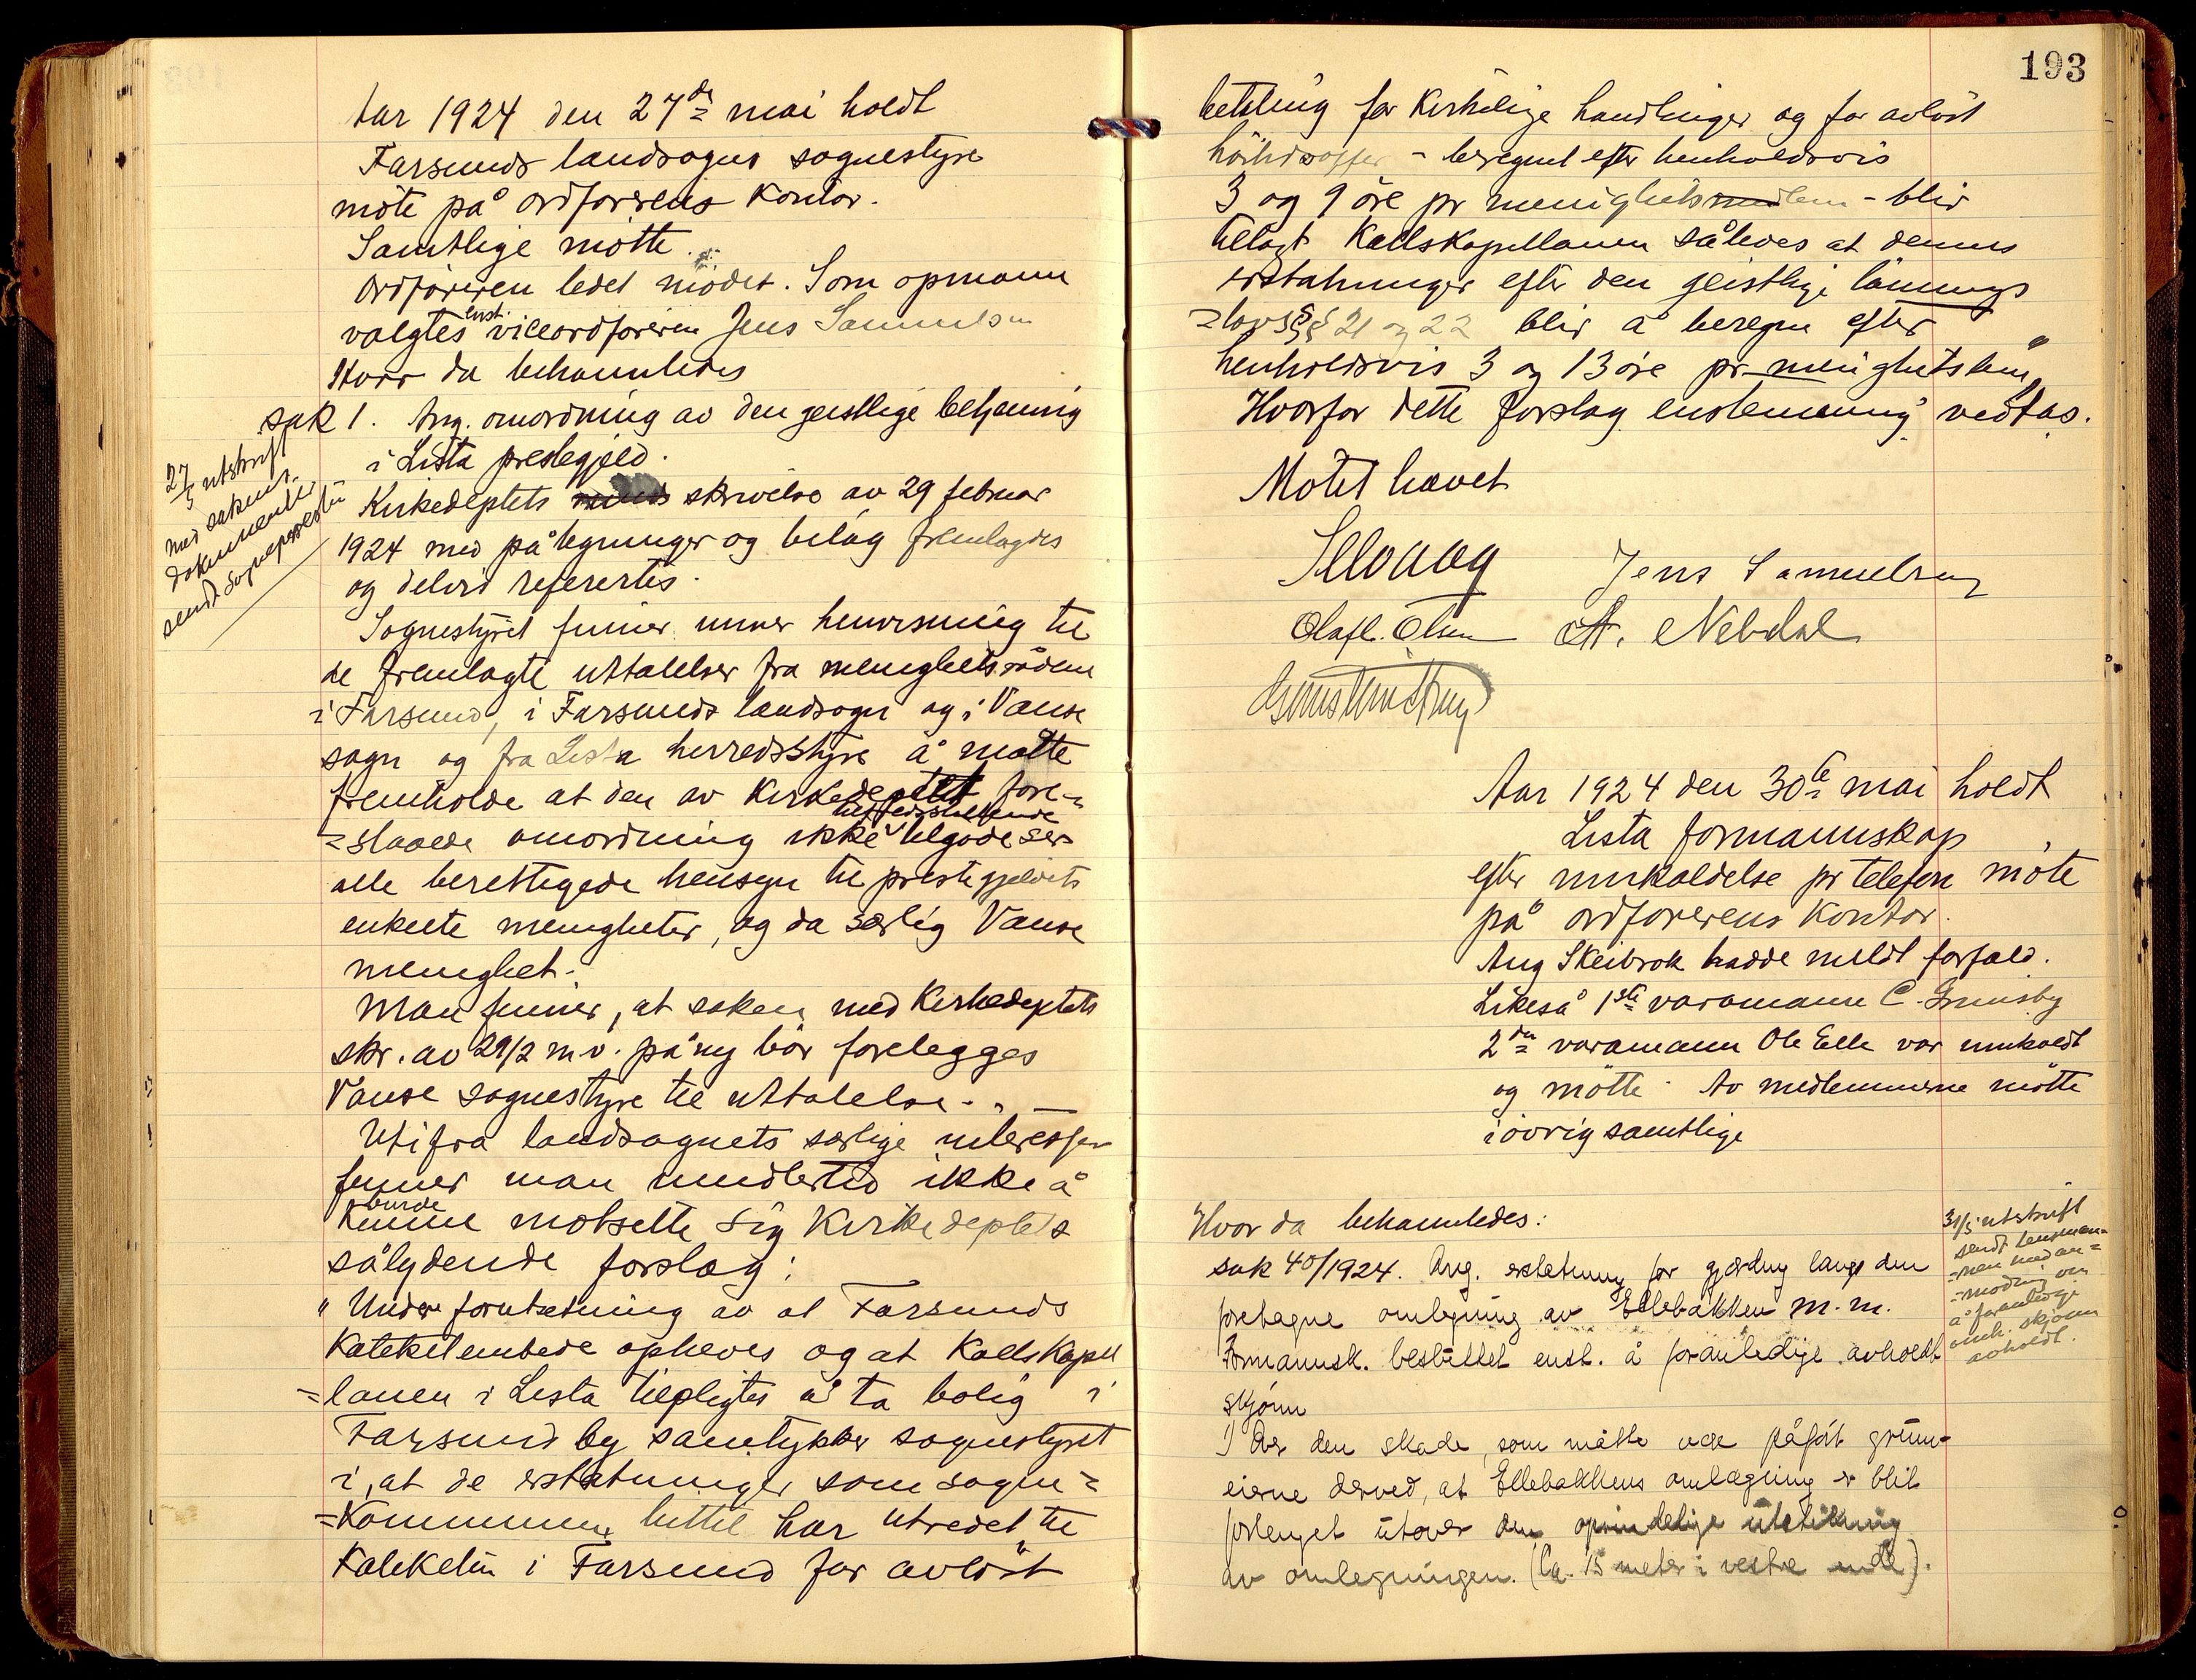 Aar 1924 den 27de mai holdt
Farsunds landsogns sognestyre
møte på ordførerens kontor.
Samtlige møtte.
Ordføreren ledet mødet. Som opmann
valgtes enst. viceordføreren Jens Samuelsen
Hvor da behandledes
sak 1. Ang. omordning av den geistlige betjening
i Lista prestegjeld.
27/5 utskrift
med sakens
dokumenter
sendt Sognepresten
Kirkedeptets skrivelse av 29 februar
1924 med påtegninger og bilag fremlagdes
og delvis refertes.
Sognestyret finner under henvisning til
de fremlagte uttalelser fra menighetsrådene
i Farsund, i Farsunds landsogn og i Vanse
sogn og fra Lista herredsstyre å måtte
fremholde at den av Kirkedeptet fore-
=slaaede omordning ikke tilfredsstillende tilgodeser
alle berettigede hensyn til prestegjeldets
enkelte menigheter, og da særlig Vanse
menighet.
Man finner, at saken med Kirkedeptets
skr. av 29/2 m.v. på ny bør forelegges
Vanse sognestyre til uttalelse. -
Utifra landsognets særlige interesser
finner man imidlertid ikke å
kunne burde motsette sig Kirkedeptets
sålydende forslag:
"Under forutsetning av at Farsunds
Kateketembede opheves og at Kallskapel
=lanen i Lista tilpligtes å ta bolig i
Farsund by samtykker sognestyret
i, at de erstatninger som sogne=
=kommunen hittil har utredet til
Kateketen i Farsund for avløst
193
betaling for kirkelige handlinger og for avløst
høitidsoffer - beregnet efter henholdsvis
3 og 9 øre pr menighetsmedlem - blir
tillagt Kallskapellanen således at dennes
erstatninger efter den geistlige lønnings
=lovs §§ 21 og 22 blir å beregne efter
henholdsvis 3 og 13 øre pr menighetslem"
Hvorfor dette forslag enstemmig vedtas.
Møtet hævet
Jens Samuelsen
Olaf L. Olsen A. Nebdal
Aar 1924 den 30te mai holdt
Lista formannskap
efter innkaldelse pr telefon møte
på ordførerens kontor.
Aug Skeibrok hadde meldt forfald.
Likeså 1ste varamann C. Grimsby
2den varamann Ole Elle var innkaldt
og møtte. Av medlemmerne møtte
iøvrig samtlige
Hvor da behandledes:
sak 40/1924. Ang. erstatning for gjerding langs den
foretagne omlegning av Ellebakken m.m.
Formannsk. besluttet enst. å foranledige avholdt
skjønn
31/5 utskrift
sendt lensman=
=nen med an=
=modning om
å foranledige
omh. skjønn
avholdt.
1) Over den skade, som måtte være påført grunn-
eierne derved, at Ellebakkens omlægning er blit
forlenget utover den oprindelige utstikning
av omlegningen. (Ca. 15 meter i vestre ende).